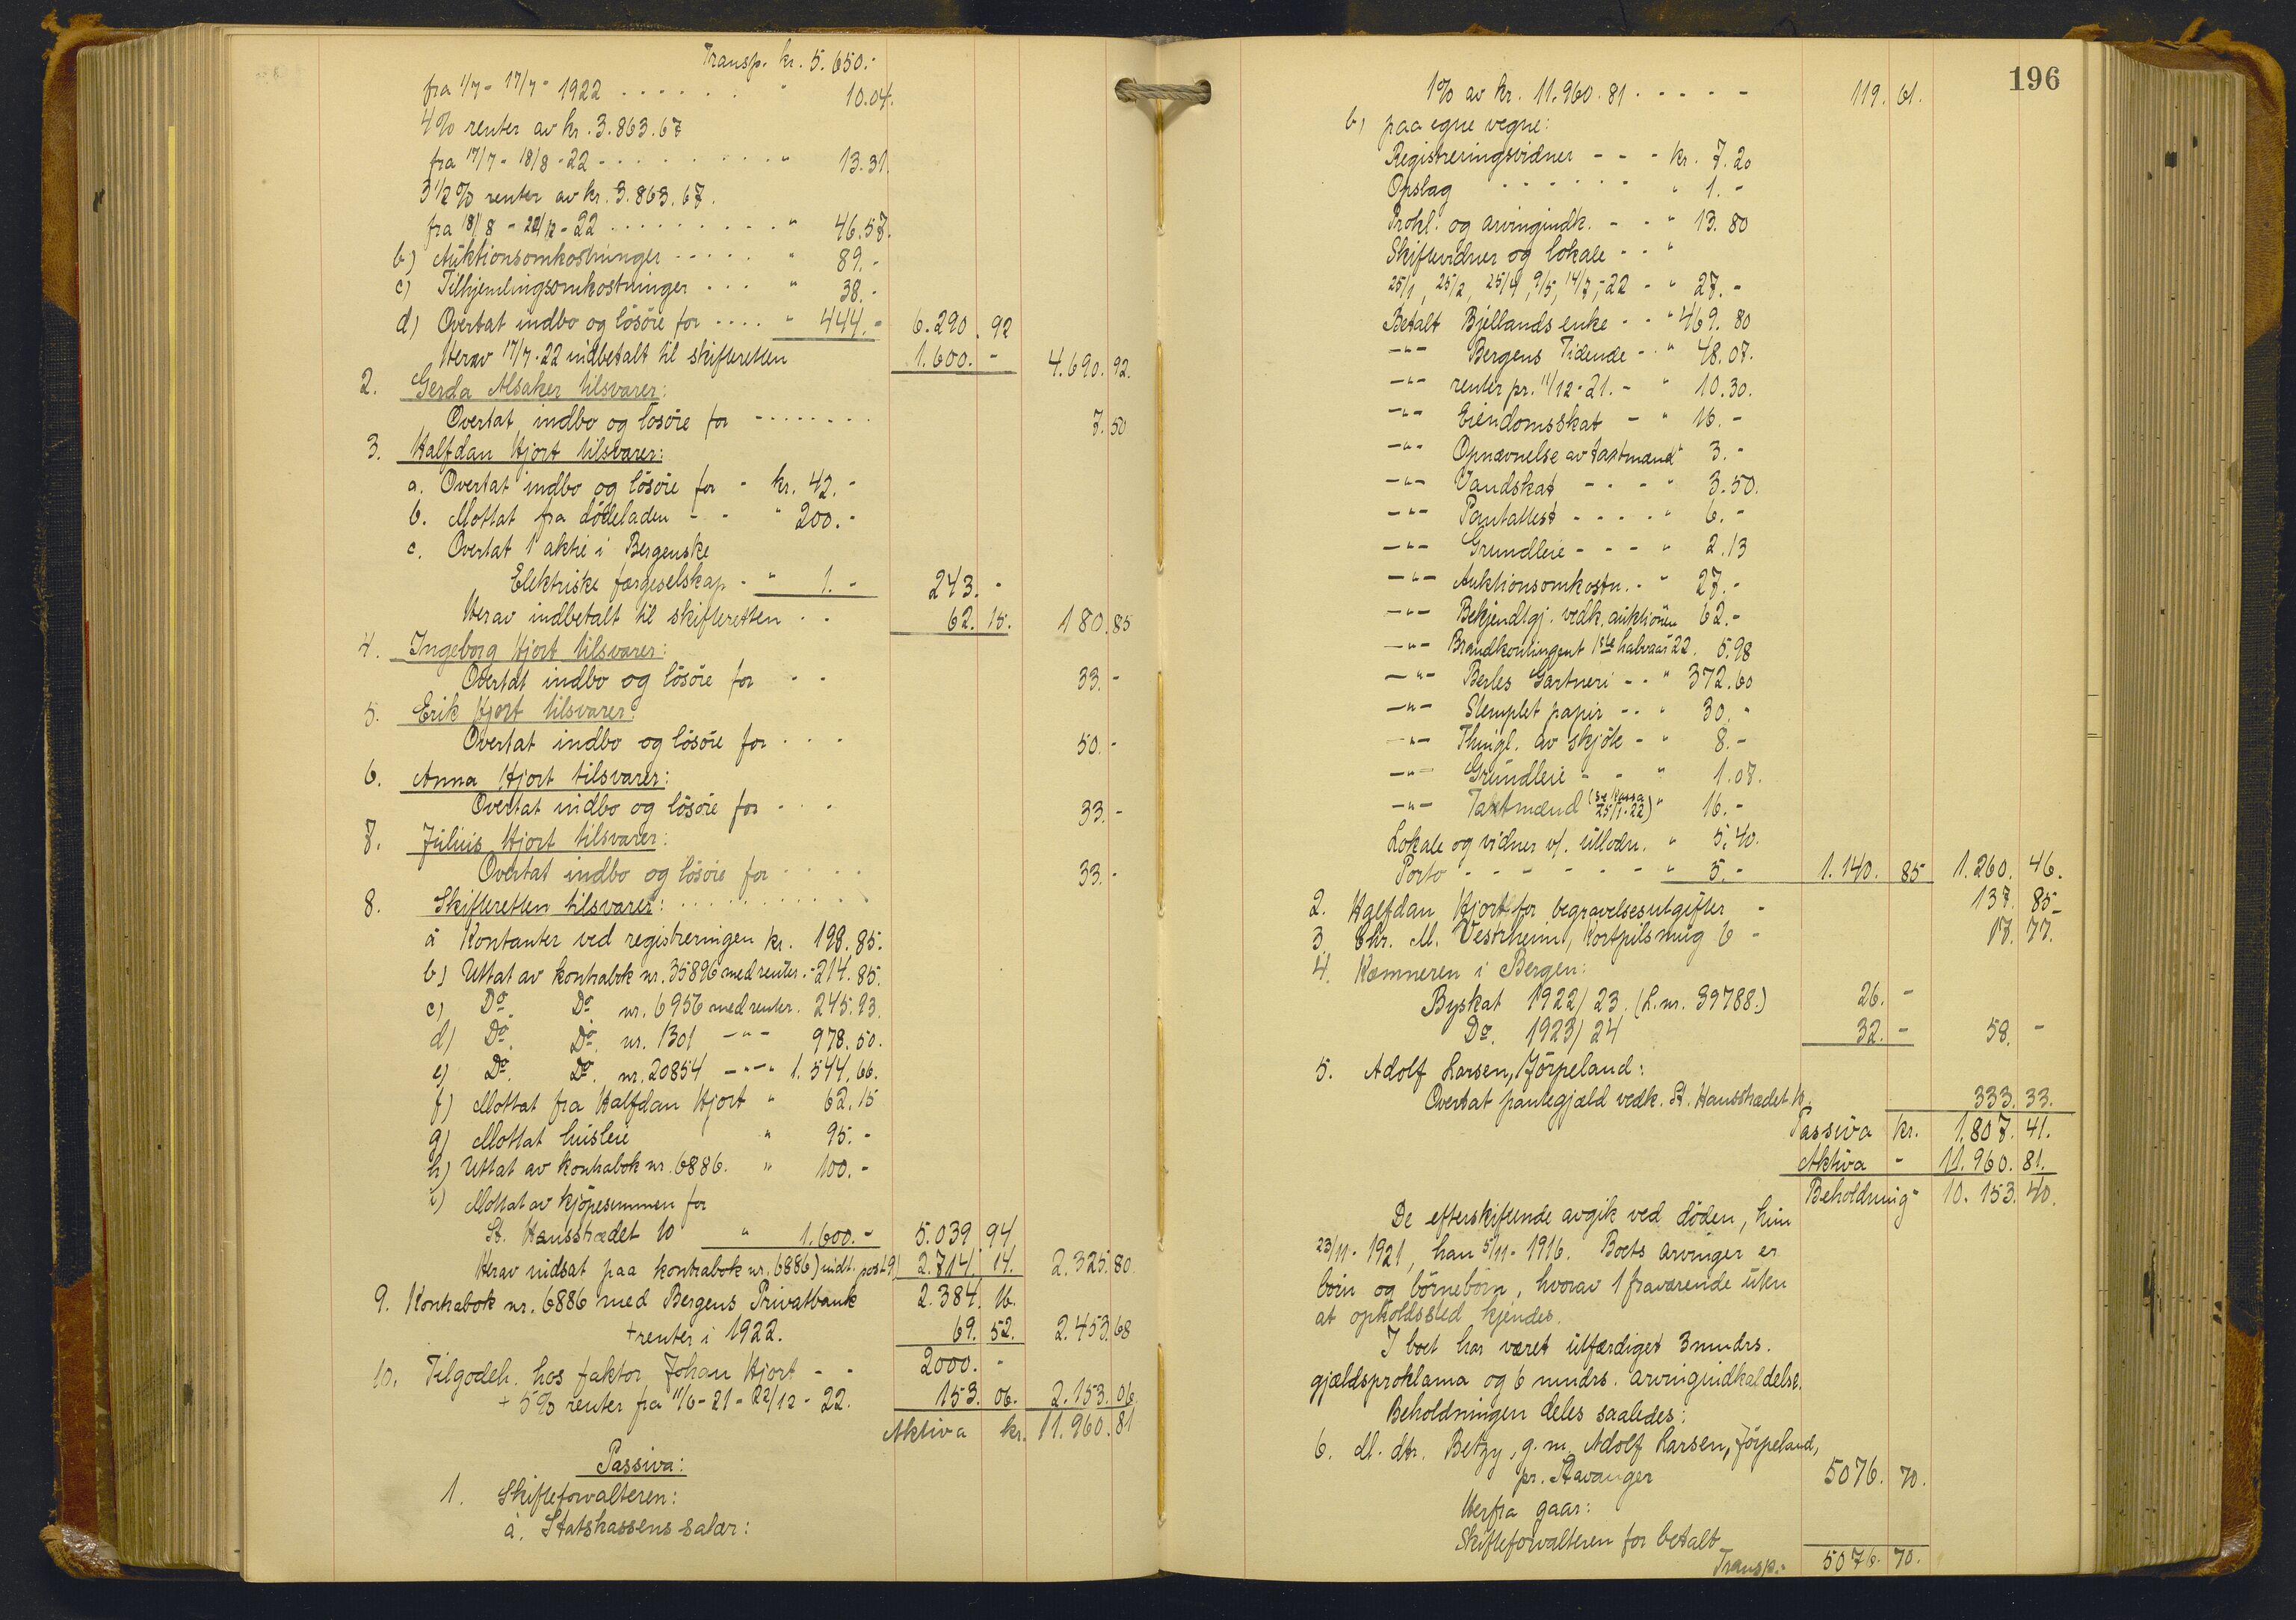 Transp. kr. 5.650.-
fra 1/7 - 17/7 - 1922 . . . . . . " 10.04.
4% renter av kr. 3.863.67
fra 17/7 - 18/8 - 22 - . . . . . . . . " 13.31.
3 1/2 % renter av kr. 3.863.67.
fra 18/8 - 22/12 - 22 . . . . . . . . . " 46.57.
b) Auktionsomkostninger . . . . . " 89.-
c) Tilhjemlingsomkostninger . . . " 38.-
d) Overtat indbo og lösöre for . . . . " 444.- 6.290.92
Herav 17/7-22 indbetalt til skifteretten 1.600.- 4.690.92.
2. Gerda Alsaker tilsvarer:
Overtat indbo og lösöre for - . . . . . . 7.50
3. Halfdan Hjort tilsvarer:
a. Overtat indbo og lösöre for - kr. 42.-
b. Mottat fra dödeladen - - " 200.-
c. Overtat 1 aktie i Bergenske
Elektriske færgeselskap - " 1.- 243.-
Herav indbetalt til skifteretten . . 62.15. 180.85
4. Ingeborg Hjort tilsvarer:
Overtat indbo og lösöre for - - 33.-
5. Erik Hjort tilsvarer:
Overtat indbo og lösöre for . . . 50.-
6. Anna Hjort tilsvarer:
Overtat indbo og lösöre for . . . 33.-
7. Julius Hjort tilsvarer:
Overtat indbo og lösöre for . . . . 33.-
8. Skifteretten tilsvarer: . . . . . . . . . . .
a Kontanter ved registreringen kr. 198.85.
b) Uttat av kontrabok nr. 35896 med renter. - 214.85.
c) Do. Do nr. 6956 med renter. 245.93.
d) Do. Do. nr. 1301 -"- 978.50.
e) Do. Do. nr. 20854 -"- " 1.544.66.
f) Mottat fra Halfdan Hjort " 62.15
g) Mottat husleie " 95.-
h) Uttat av kontrabok nr. 6886. " 100.-
i) Mottat av kjöpesummen for
St. Hansstrædet 10 " 1.600.- 5.039.94
Herav indsat paa kontrabok nr. 6886) indt. post 9) 2.714.14. 2.325.80.
9. Kontrabok nr. 6886 med Bergens Privatbank 2.384.16.
+ renter i 1922. 69.52. 2.453.68
10. Tilgodeh. hos faktor Johan Hjort - - 2000.-
+ 5% renter fra 11/6-21 - 22/12-22. 153.06. 2.153.06.
Aktiva kr. 11.960.81
Passiva:
1. Skifteforvalteren:
a. Statskassens salær:
196
1% av kr. 11.960.81 . . . . - 119.61.
b) paa egne vegne:
Registreringsvidner - - - kr. 7.20
Opslag . . . . . . " 1.-
Prokl. og arvingindk. - - " 13.80
Skiftevidner og lokale - - "
25/1, 25/2, 25/4, 9/5, 14/7, -22 - " 27.-
Betalt Bjellands enke - - " 469.80
-"- Bergens Tidende - - " 48.07.
-"- renter pr. 11/12-21. - " 10.30.
-"- Eiendomsskat - " 16.-
-"- Opnævnelse av taxtmænd " 3.-
-"- Vandskat - - - " 3.50.
-"- Pantattest - - - - " 6.-
-"- Grundleie - - - " 2.13
-"- Auktionsomkostn. - " 27.-
-"- Bekjendtgj. vedk. auktionen 62.-
-"- Brandkontingent 1ste halvaar 22. 5.98
-"- Berles Gartneri - - " 372.60
-"- Stemplet papir - - " 30.-
-"- Thingl. av skjöte - " 8.-
-"- Grundleie - - " 1.07.
-"- Taxtmænd (se kassa 25/1-22) " 16.-
Lokale og vidner v/. utlodn. " 5.40.
Porto . - - - - - - " 5.- 1.140.85 1.260.46.
2. Halfdan Hjort for begravelsesutgifter - 137.85-
3. Chr. M. Vestrheim, Kortpilsmug 6 - 17.77.
4. Kæmneren i Bergen:
Byskat 1922/23. (L.nr. 39788.) 26.-
Do. 1923/24 32.- 58.-
5. Adolf Larsen, Jörpeland:
Overtat pantegjæld vedk. St. Hansstrædet 10. 333.33.
Passiva kr. 1.807.41.
Aktiva - 11.960.81.
Beholdning " 10.153.40.
De efterskiftende avgik ved döden, hun
23/11-1921, han 5/11-1916. Boets arvinger er
börn og börnebörn, hvorav 1 fraværende uten
at opholdssted kjendes.
I boet har været utfærdiget 3 mndrs.
gjældsproklama og 6 mndrs. arvingindkaldelse.
Beholdningen deles saaledes:
6. dl. dtr. Betzy, g.m. Adolf Larsen, Jörpeland,
pr. Stavanger 5076.70.
Herfra gaar:
Skifteforvalteren for betalt
Transp.- 5076.70.